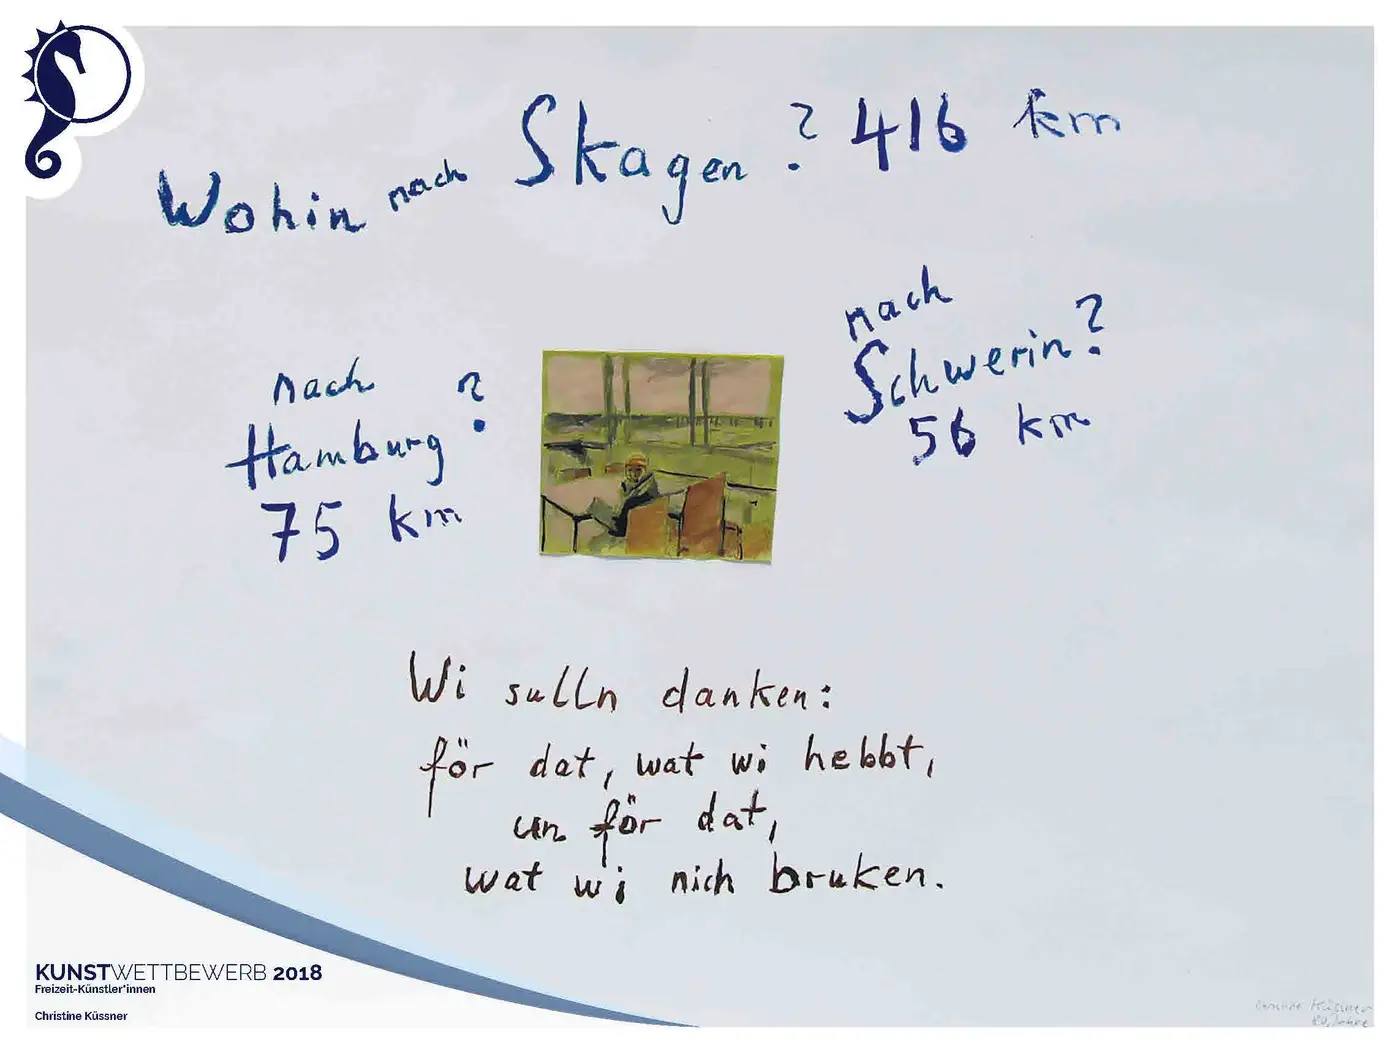 Wohin nach Skagen? 416 km
nach
Schwerin?
56 km
nach
Hamburg?
75 km
Wi sulln danken:
för dat, wat wi hebbt,
un för dat,
wat wi nich bruken.
KUNSTWETTBEWERB 2018
Freizeit-Künstler*innen
Christine Küssner
Küssner